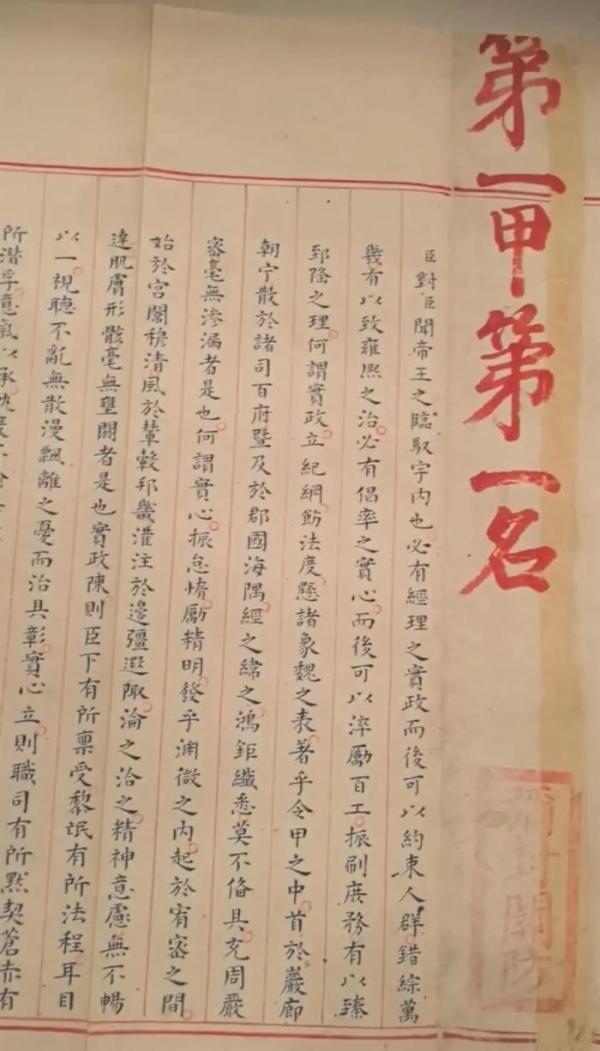 第一甲第一名
臣對臣聞帝王之臨馭宇內也必有經理之實政而後可以約束人群錯綜萬
幾有以致雍熙之治必有倡率之實心而後可以淬勵百工振刷庶務有以臻
郅隆之理何謂實政立紀綱飭法度懸諸象魏之表著乎令甲之中首於巖廊
朝宁散於諸司百府暨及於郡國海隅經之緯之鴻鉅纖悉莫不俻具充周嚴
審毫無滲漏者是也何謂實心振怠惰勵精明發乎淵微之內起於宥審之間
始於宮闈穆清風於輦轂邦畿灌注於邊疆遐陬淪之洽之精神意慮無不暢
達肌膚形骸毫無壅閼者是也實政陳則臣下有所稟受黎氓有所法程耳目
以一視聽不亂無散漫飄離之憂而治具彰實心立則職司有所默契蒼赤有
所潛孚意氣以承